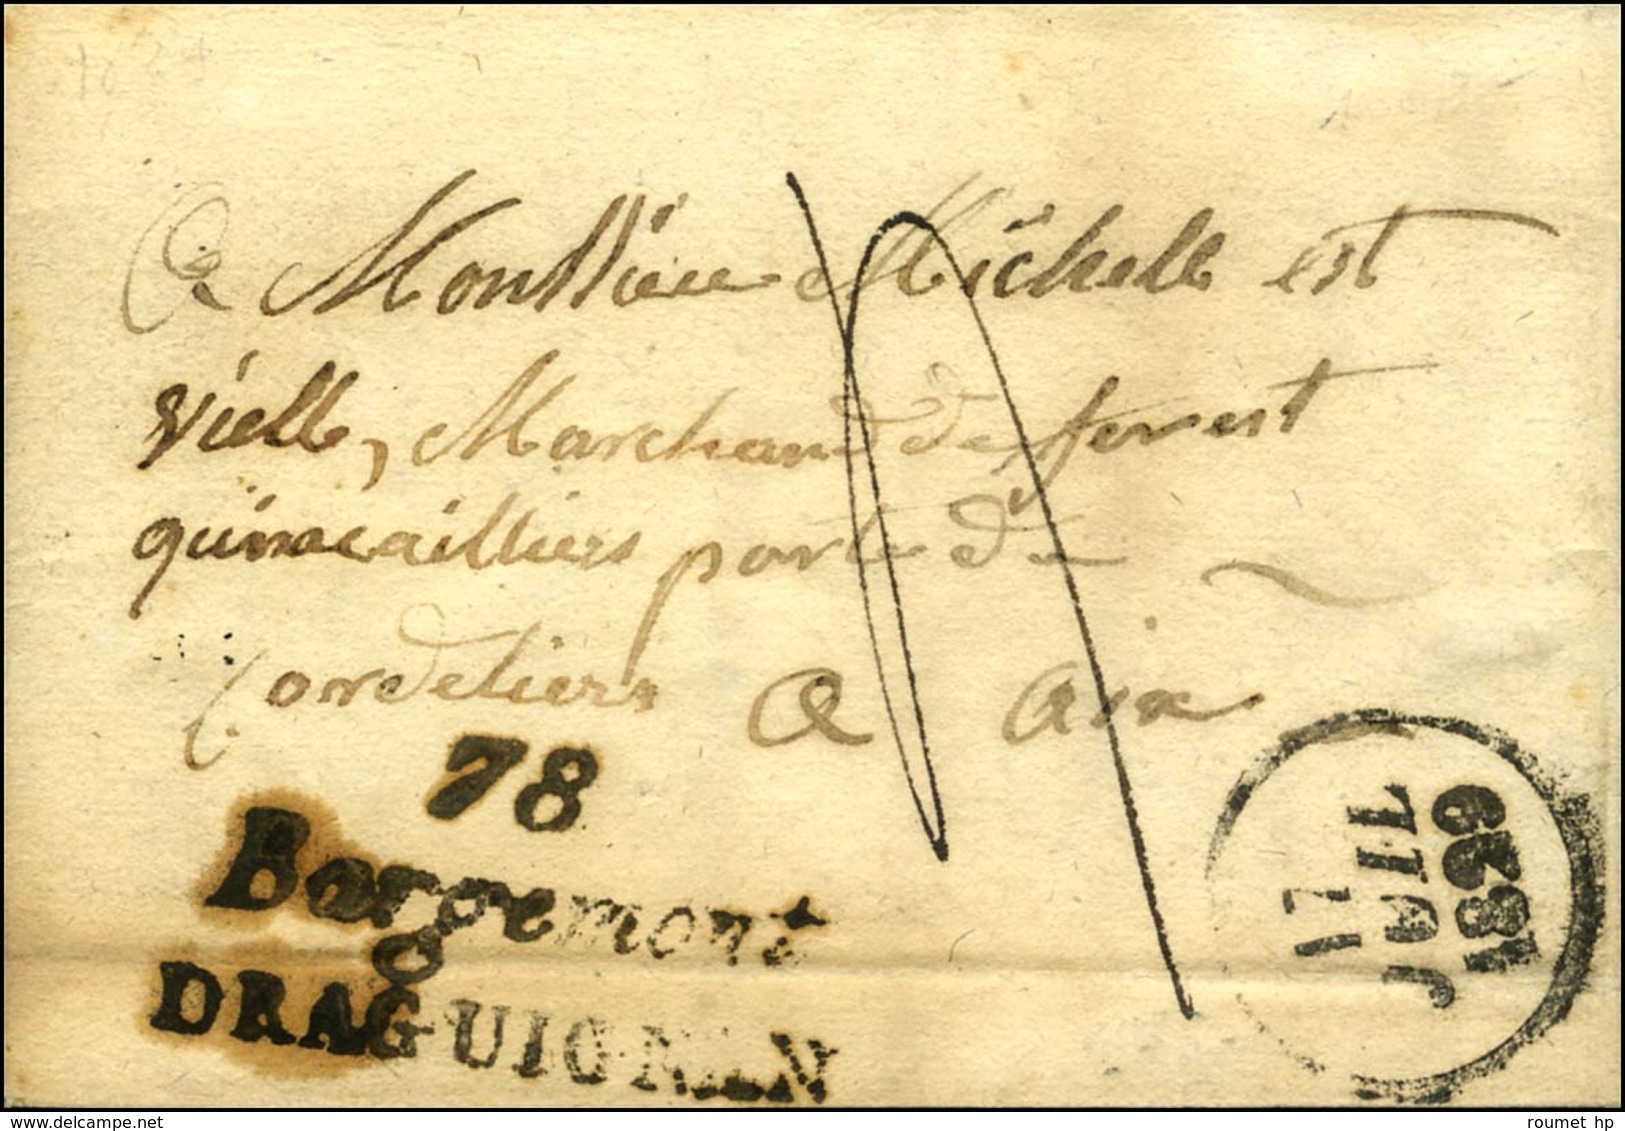 a Monssieu Michelle est
vielle, Marchand de fer est
quincailliers porte de
Cordeliers a aix
78
Bargemont
DRAGUIGNAN
17
JUILLET
1829
roumet hp